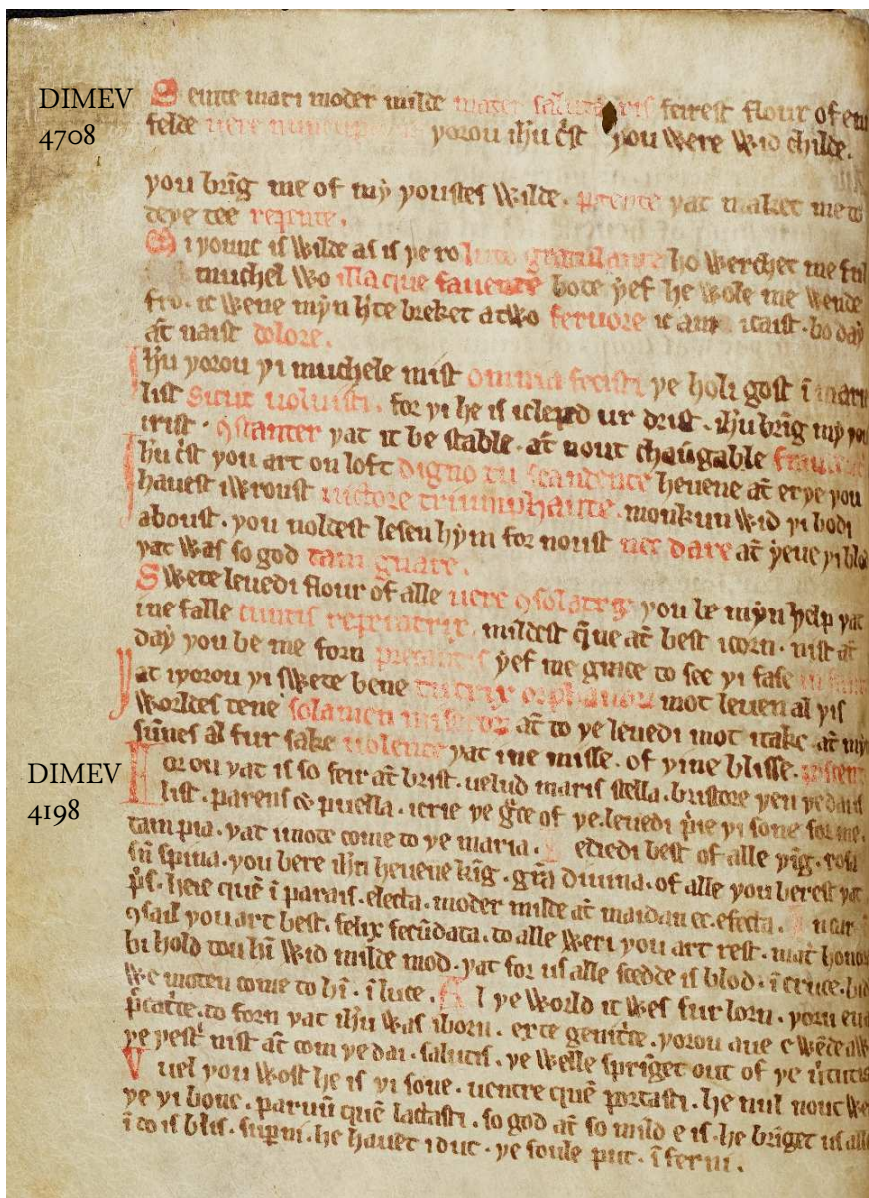 DIMEV
4708
Seinte mari moder milde mater salutaris feirest flour of eni
felde vere nuncuparis yorou ihu c̄st you were wid childe.
you br̄ig me of my youstes wilde. potente yat maket me to
deye tee repente.
Mi yount is wilde as is ye ro luto gratulante ho werchet me ful
muchel wo illaque favente bote yef he wole me wende
fro. ic wene myn h̄te breket atwo fervore ic am icaist. bo day
at̄ naist dolore.
Ih̄u yorou yi muchele mist omnia fecisti ye holi gost ī marie
list sicut voluisti. for yi he is icleped ur drist. ih̄u br̄ig my you
irist. ꝯstanter yat it be stable. at̄ nout chaūgable
Ih̄u c̄st you art on loft digno tu scandente hevene at̄ erye you
havest iwroust victore triumphante. monkun wid yi bodi
aboust. you noldest lesen hym for noust nec dare at̄ yeve yi blod
yat was so god tam gnare.
Swete levedi flour of alle vere ꝯsolatrix you be myn help yat
ine falle cunctis reparatrix. mildest q̄ne at̄ best icorn. nist at̄
day you be me forn precantis yef me grace to see yi fase
yat iyorou yi swete bene tutrix orphanorum mot leven al yis
worldes tene solamen miserorum at̄ to ye levedi mot itake at̄ my
sūnes al fur sake volente yat ine misse. of yine blisse.
DIMEV
4198
For ou yat is so feir at̄ brist. velud maris stella. bristore yen ye dais
list. parens & puella. icrie ye gr̄ce of ye. levedi p̄rie yi sone for me.
tam pia. yat imote come to ye maria. Levedi best of alle yīg. rosa
sn̄ spina. you bere ih̄u hevene kīg. gr̄a divina. of alle you berest yat
p̄s. heie quē ī parais. electa. moder milde at̄ maidan ec. efecta.
ꝯsail you art best. felix fecūdata. to alle weri you art rest. mat̄ honor
bi hold tou hī wid milde mod. yat for us alle scedde is blod. ī cruce. bid
we moten come to hī. ī luce. Al ye world it wes fur lorn. yorn eva
p̄catr̄ce. to forn yat ih̄u was iborn. ex te genitr̄ce. yorou ave e wēde aw
ye yestr̄ nist at̄ com ye dai. salutis. ye welle sprīget out of ye v̄tutis
Vuel you wost he is yi sone. ventre quē portasti. he nul nout we
ye yi bone. parvū quē lactasti. so god at̄ so mild e is. he brīget us alle
ī to is blis. sup̄ni. he havet idut. ye foule put. īferni.